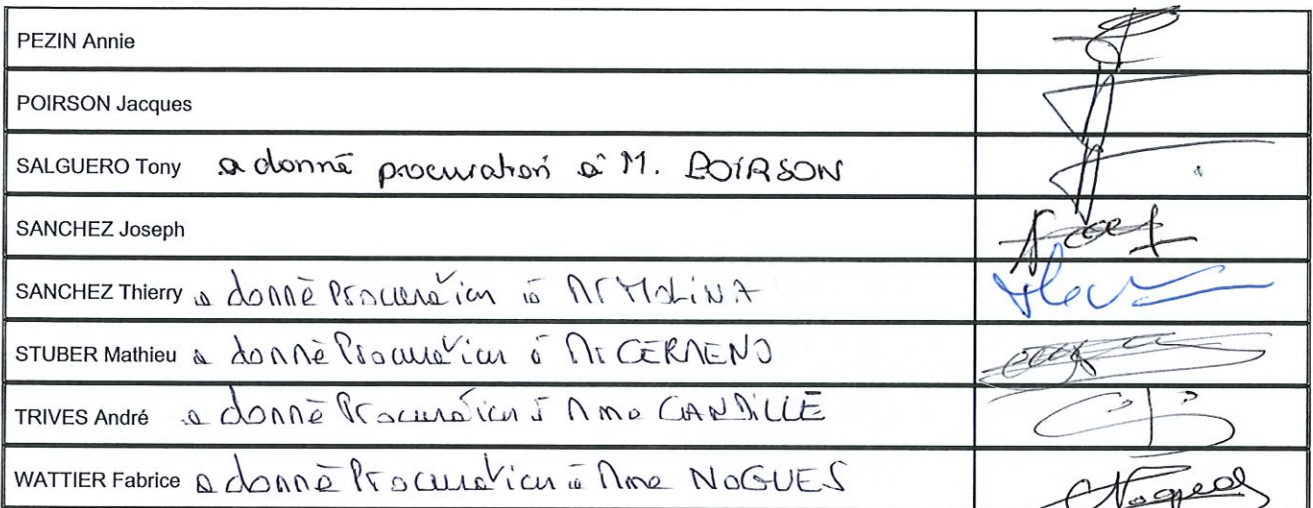 PEZIN Annie
POIRSON Jacques
SALGUERO Tony a donné procuration à M. POIRSON
SANCHEZ Joseph
SANCHEZ Thierry a donné Procuration à Mr MOLINA
STUBER Mathieu a donné Procuration à Mr CERMENO
TRIVES André a donné Procuration à Mme CANDILLE
WATTIER Fabrice a donné Procuration à Mme NOGUES